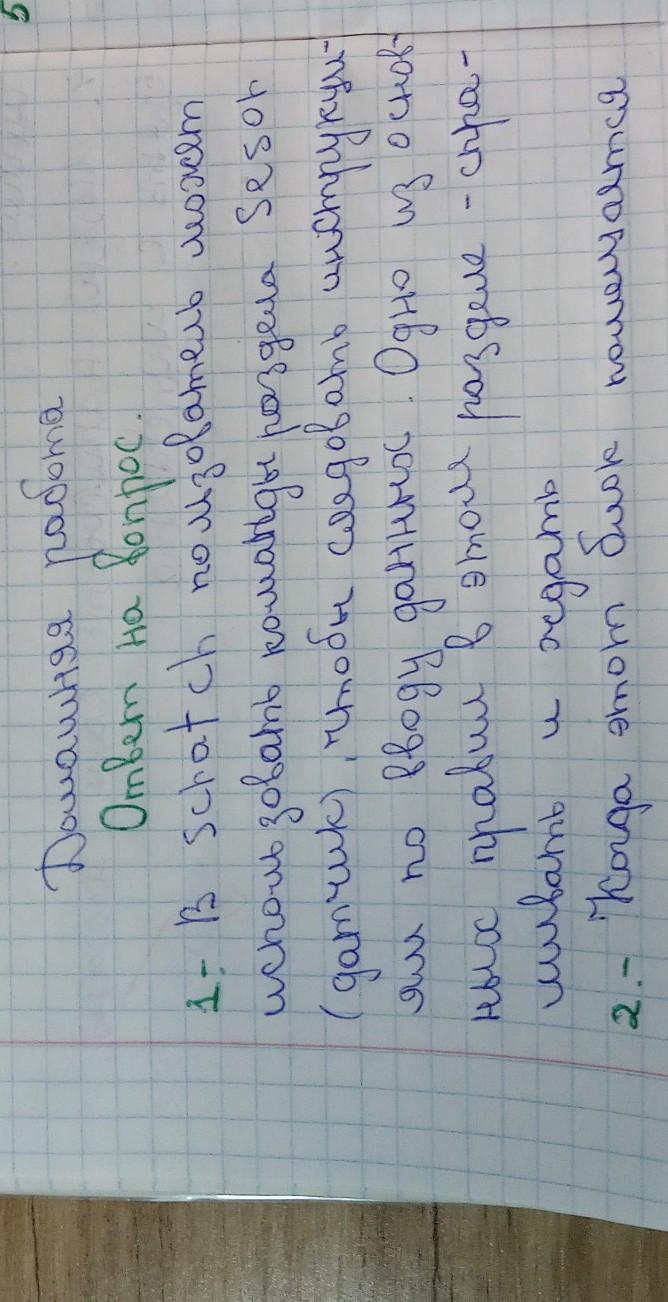 5
Домашняя работа
Ответ на вопрос.
1.- В Scratch ползователь может
использовать команды раздела Sesor
(датчик), чтобы следовать инструкци-
ям по вводу данных. Одно из основ-
ных правил в этом разделе - спра-
шивать и ждать
2.- Когда этот блок помещается